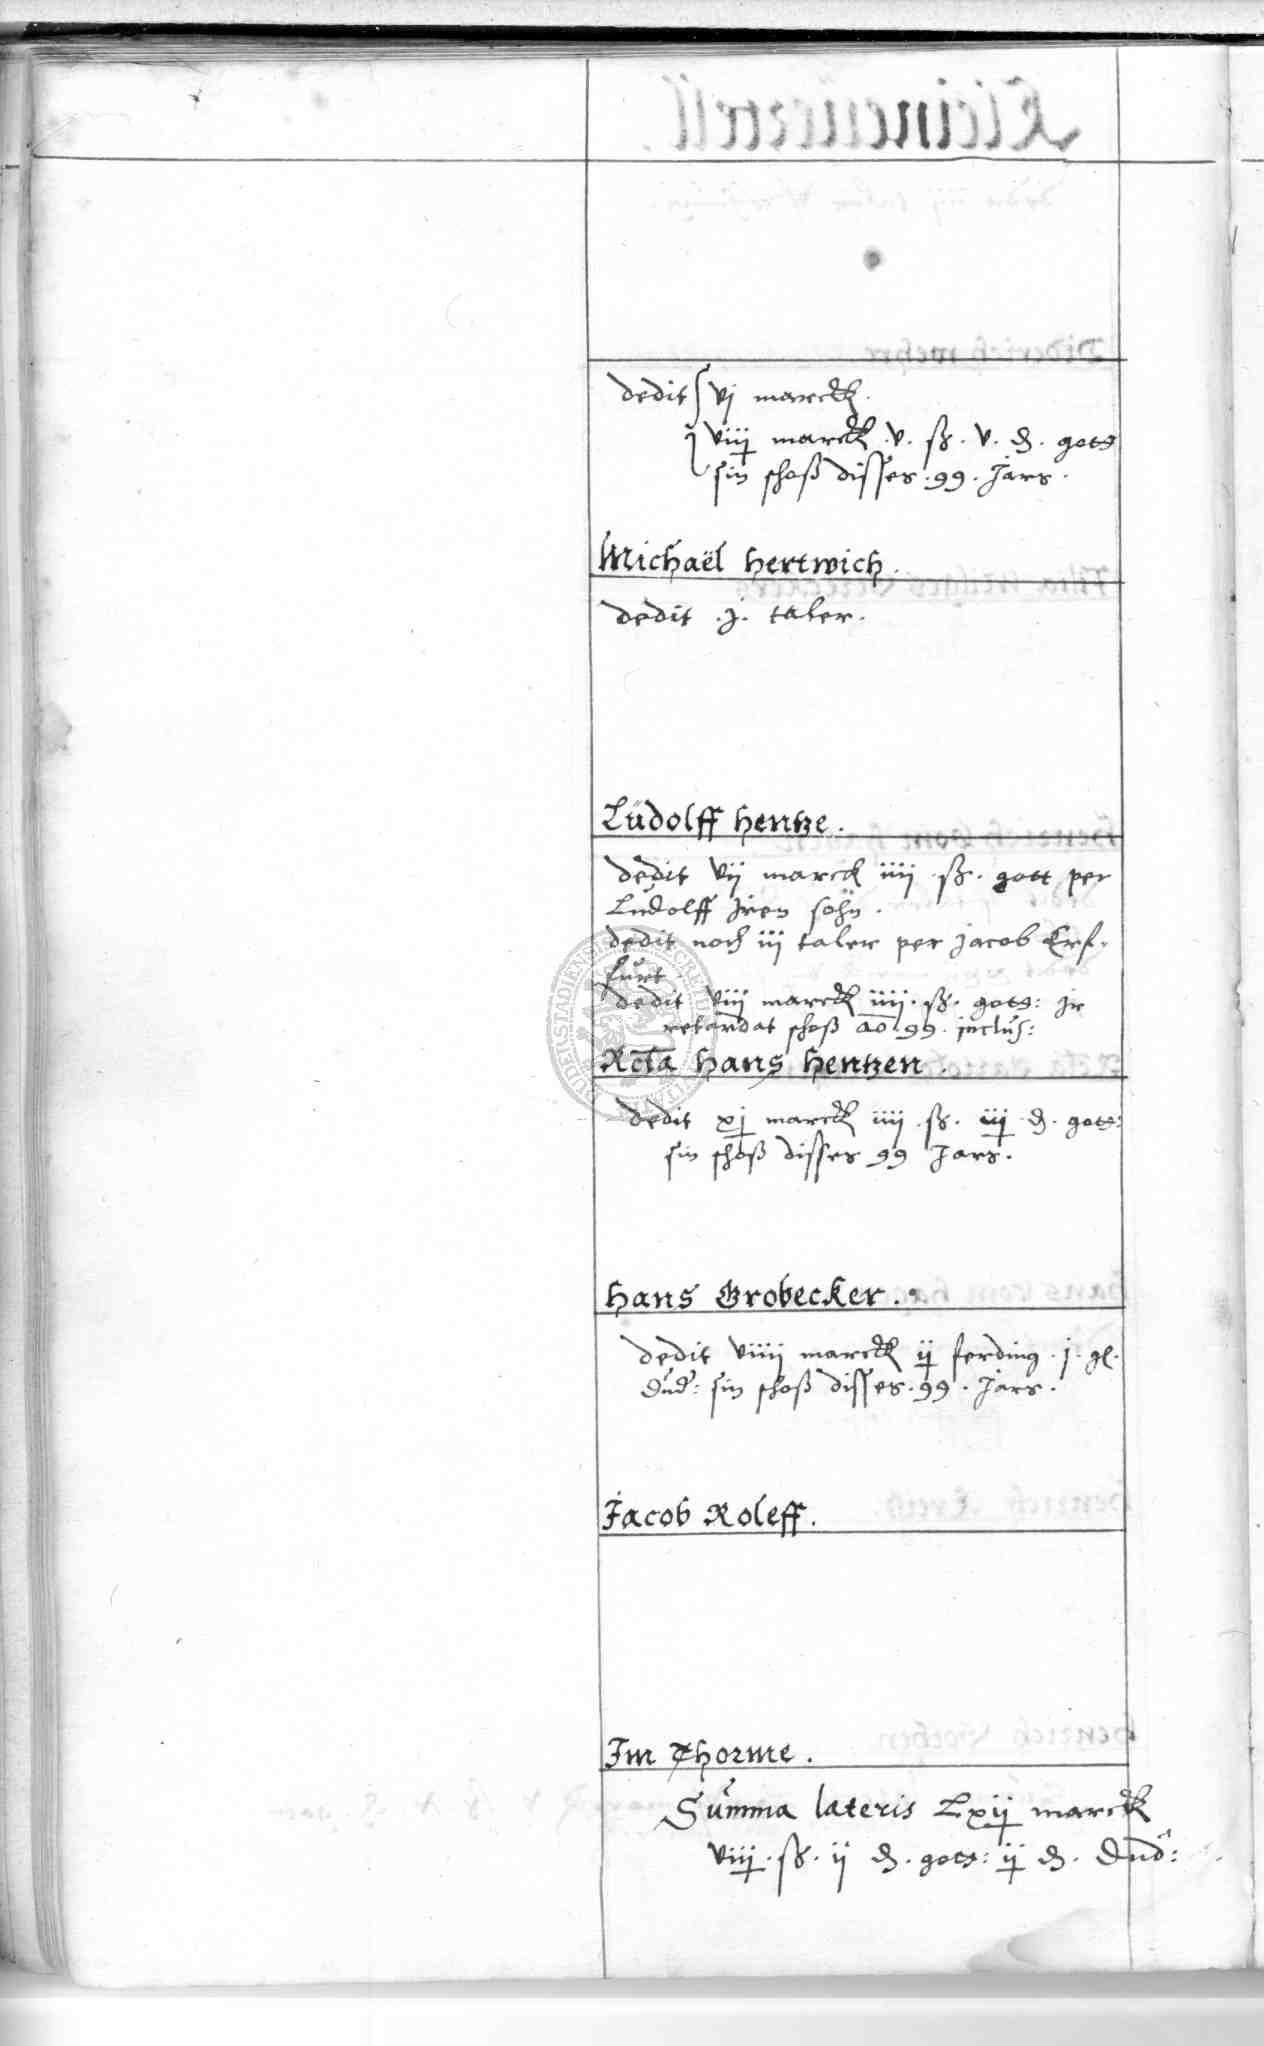 dedit vj marck.
viiij marck .v. ß. v. d. gots
sin schoß disses .99. Jars.
Michaël Hertwich.
dedit .j. taler.
Lüdolff Hentze.
dedit vij marck iiij .ß. gott per
Ludolff Iren sohn.
dedit noch iij taler per Jacob Erf-
furt
dedit viij marck iiij .ß. gots: Ir
retardat schoß ao 99. inclus:
Rcta Hans Hentzen.
dedit xj marck iiij .ß. iij .d. gots:
sin schoß disses 99 Jars.
Hans Grobecker.
dedit viiij marck ij ferding .j. gl.
Dud: sin schoß disses .99. Jars.
Jacob Roleff.
Im Thorme.
Summa lateris Lxij marck
viiij .ß. ij d. gots: ij d. Dud: